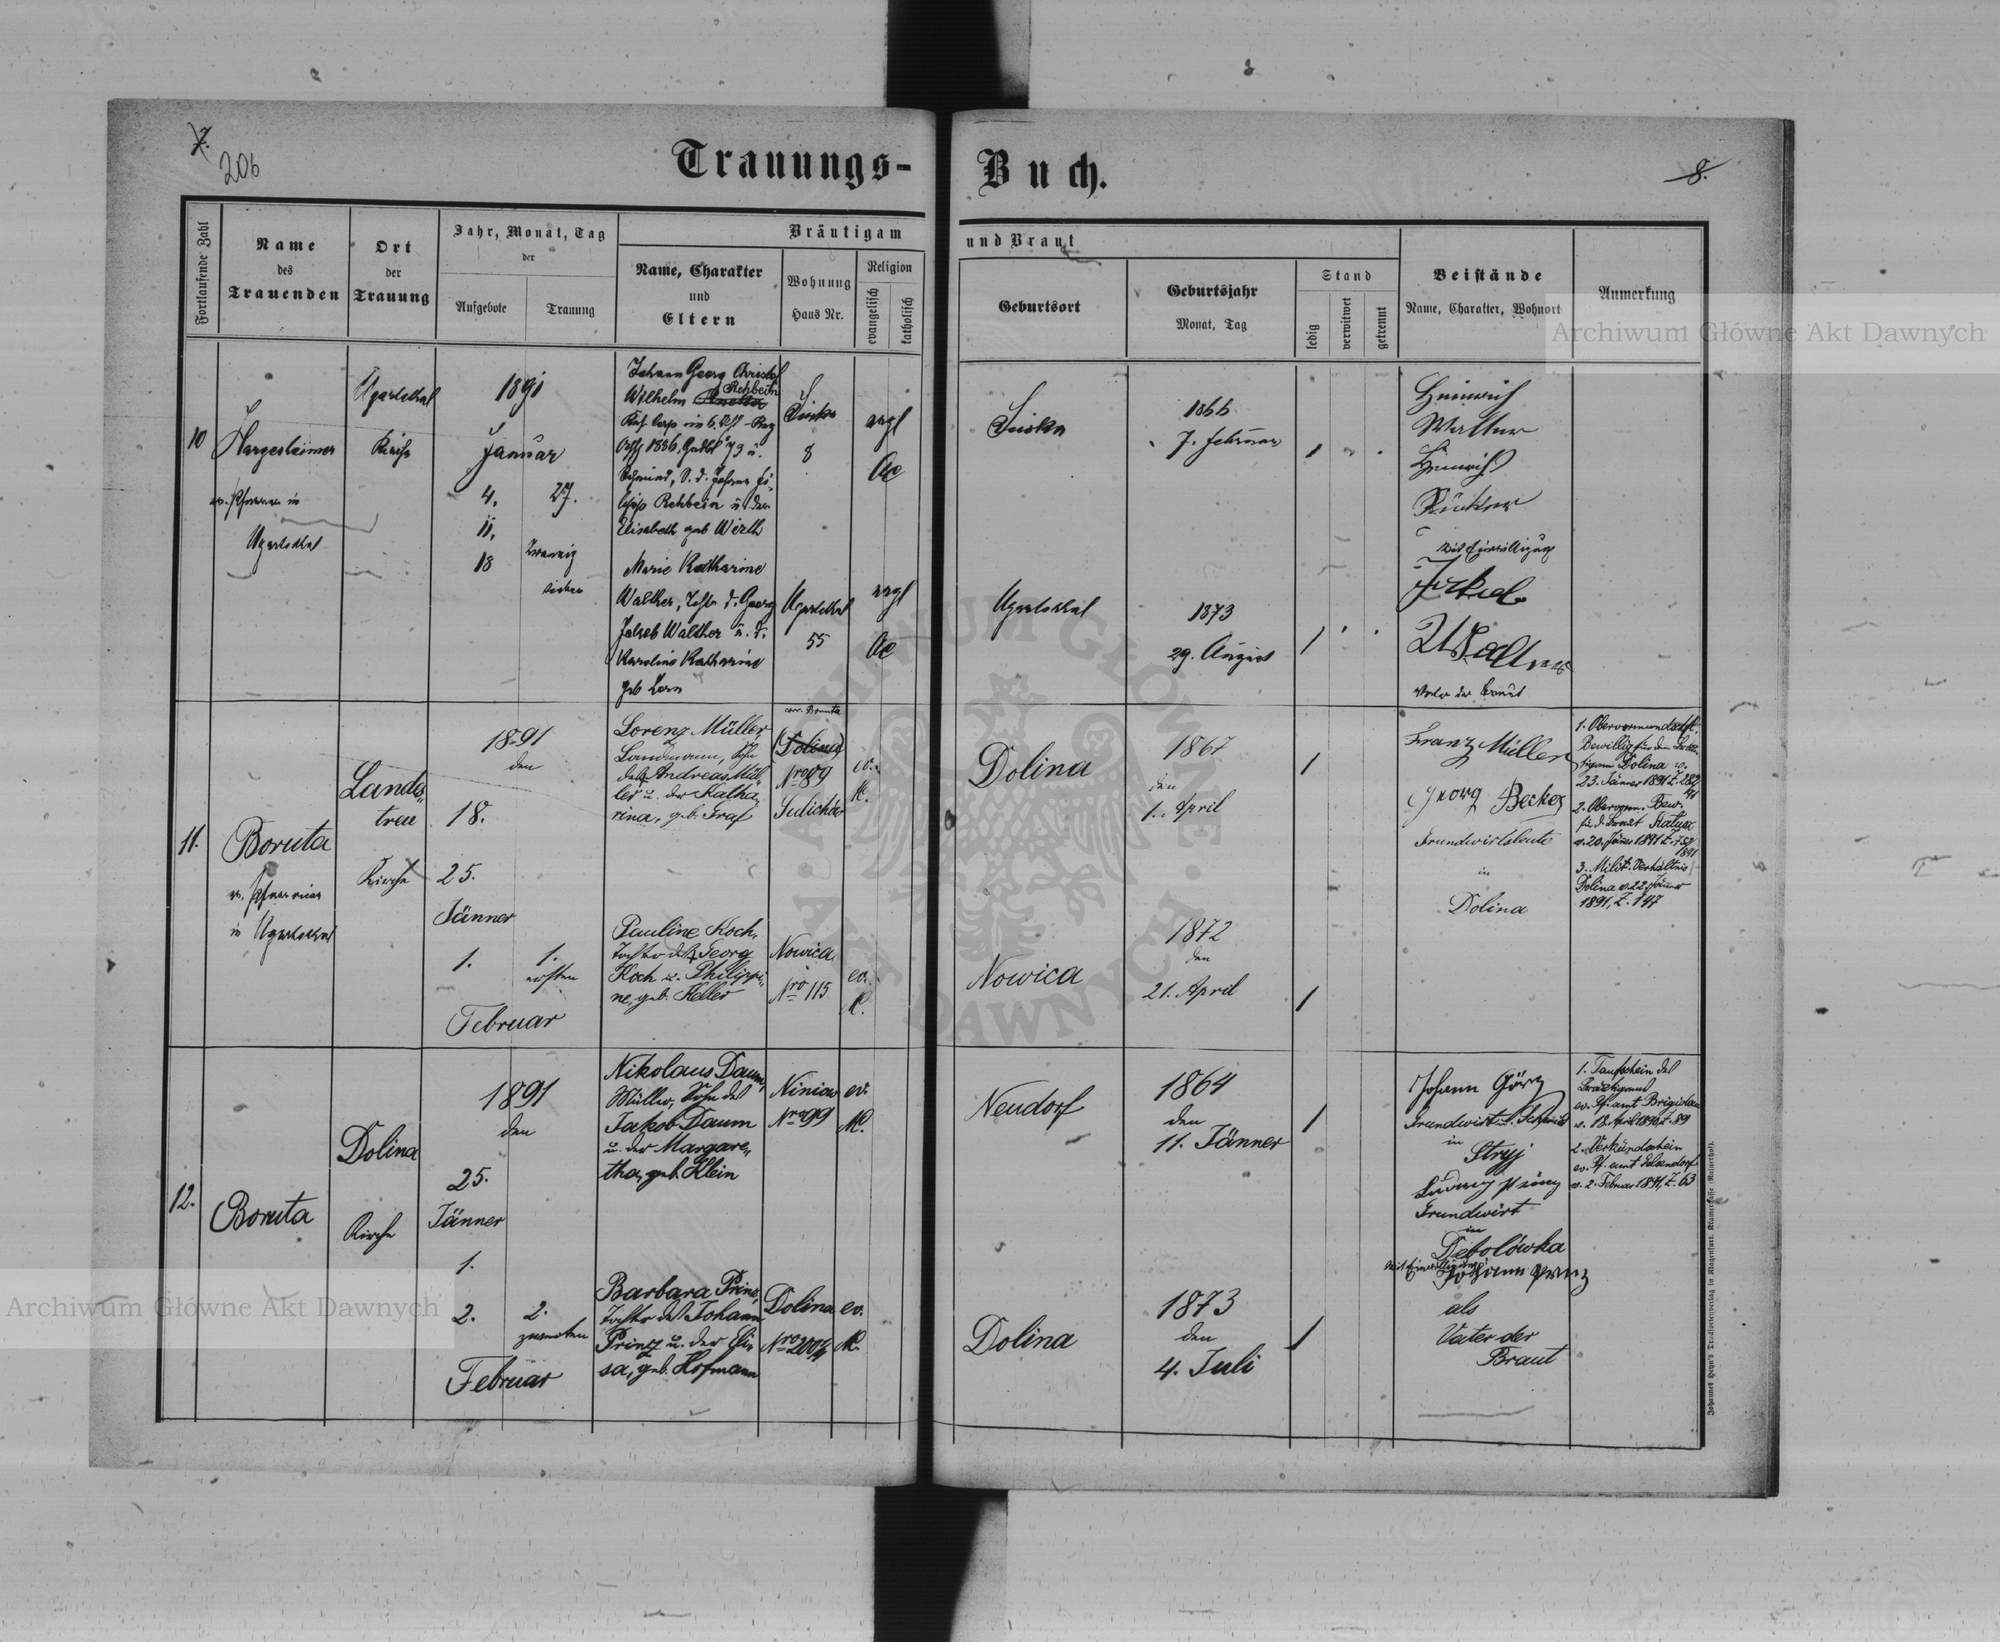 7.
206
Trauungs-
Buch.
8.
Fortlaufende Zahl
Name
des
Trauenden
Ort
der
Trauung
Jahr, Monat, Tag
der
Aufgebote
Trauung
Bräutigam
und Braut
Name, Charakter
und
Eltern
Wohnung
Haus Nr.
Religion
evangelisch
katholisch
Geburtsort
Geburtsjahr
Monat, Tag
Stand
ledig
verwitwet
getrennt
Beistände
Name, Charakter, Wohnort
Anmerkung
10
Hargesheimer
ev. Pfarrer in
Ugartsthal
Ugartsthal
Kirche
1891
Januar
4.
27.
11.
18
Zwanzig
sieben
Johann Georg Christof
Wilhelm Rehbein
Schmied, S. d. Johann
Rehbein u. der
Elisabeth geb Wirth
8
evgl
AC
1866
7. Februar
Heinrich
Walther
Heinrich
Mit Einwilligung
Marie Katharine
Walther, Tochter d. Georg
Jakob Walther u. d.
Karoline Katharine
geb Zorn
Ugartsthal
55
evgl
AC
Ugartsthal
1873
29. August
Jakob
Walther
Vater der Braut
11.
Boruta
ev. Pfarrvicar
in Ugartsthal
Landes-
treu
Kirche
1891
den
18.
25.
Jänner
1.
1.
ersten
Februar
Lorenz Müller,
Landmann, Sohn
des † Andreas Mül-
ler u. der Katha-
rina, geb. Graf
corr. Boruta
(Dolina)
Nro 89
Sulichów
ev.
AC.
Dolina
1867
den
1. April
Franz Müller
Georg Becker
Grundwirtsleute
in
Dolina
1. Obervormundschftl.
Bewillig für den Bräu-
tigam Dolina v.
23. Jänner 1891 Z. 282
/91
2. Obervorm. Bew.
für d. Braut Kałusz
v. 20. Jänner 1891 Z. 752
1891
3. Milit. Verhältnis
Dolina v. 22. Jänner
1891, Z. 147
Pauline Koch,
Tochter des † Georg
Koch u. Philippi-
ne, geb. Keller
Nowica
Nro 115
ev.
AC.
Nowica
1872
den
21. April
12.
Boruta
Dolina
Kirche
1891
den
25.
Jänner
1.
2.
2.
zweiten
Februar
Nikolaus Daum,
Müller, Sohn des
Jakob Daum
u. der Margare-
tha, geb. Klein
Niniow
Nro 99
ev.
AC.
Neudorf
1864
den
11. Jänner
Johann Görz
Grundwirt u. Schmied
in
Stryj
Ludwig Prinz
Grundwirt
in
Debolówka
Mit Einwilligung
Johann Prinz
als
Vater der
Braut
1. Taufschein des
Bräutigams
ev. Pf. amt Brigidau
v. 18. April 1890, Z. 89
2. Verkündschein
ev. Pf. amt Gelsendorf
v. 2. Februar 1891, Z. 63
Barbara Prinz,
Tochter des Johann
Prinz u. der Eli-
sa, geb. Hofmann
Dolina
ev.
AC.
Dolina
1873
den
4. Juli
Archiwum Główne Akt Dawnych
Archiwum Główne Akt Dawnych
ARCHIWUM GŁÓWNE AKT DAWNYCH